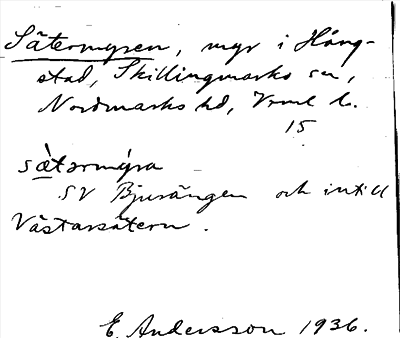 Sätermyren, myr i Hång-
stad, Skillingmarks sn,
Nordmarks hd, Vrml l.
15
sὰ̱tərmýra
SV Bjurängen och intill
Västersätern.
E. Andersson 1936.